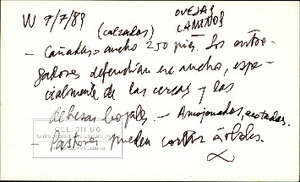 W 9/7/89 (calzadas) OVEJAS
CAMINOS
- Cañadas = ancho 250 pies. Los entre-
gadores defendían ese ancho, espe-
cialmente de las cercas y las
dehesas boyales. - Amojonadas, acotadas.
- Pastores pueden cortar árboles.